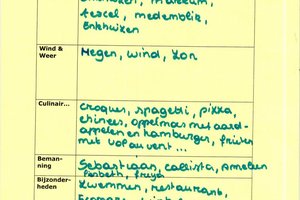 texcel, medemblik,
Enkhuizen
Wind &
Weer
Regen, wind, zon
Culinair...
Croques, spagetti, pizza,
chinees, appelmoes met aard-
appelen en hamburger, frieten
met vol au vent...
Beman-
ning
Sebastiaan, callista, Annelien
Liesbeth, freya
Bijzonder-
heden
Zwemmen, restaurant,